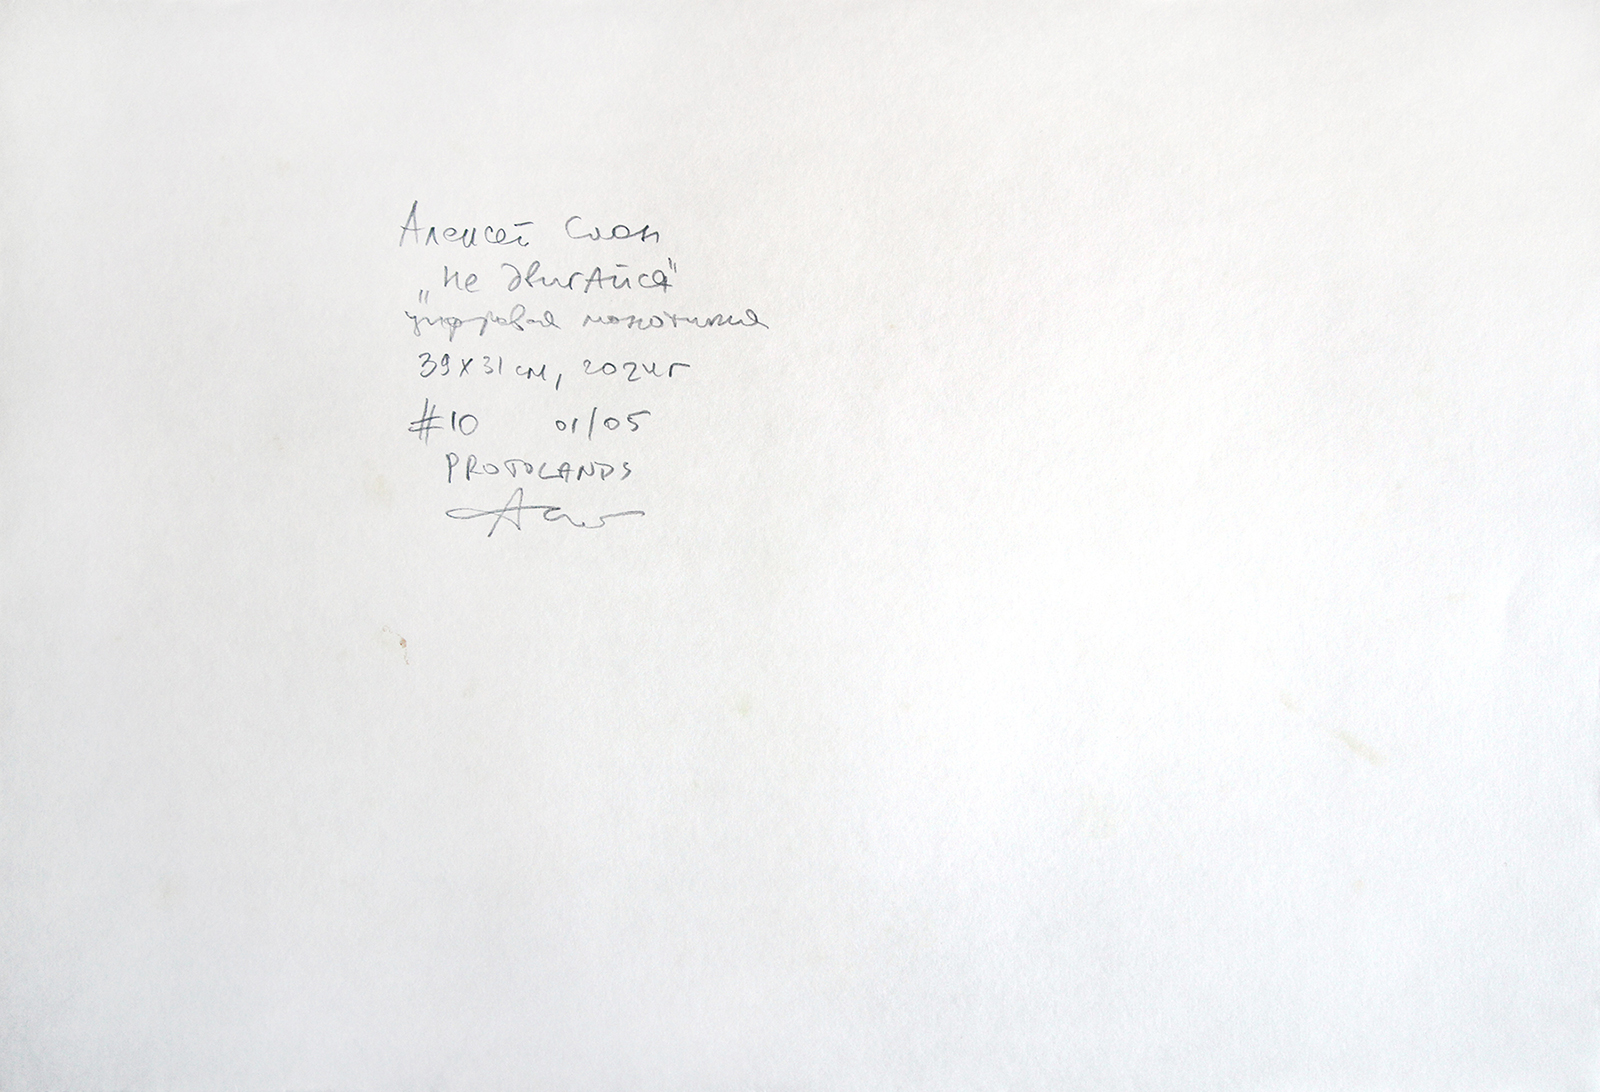 Алексей Слон
„Не двигайся"
цифровая монотипия
39x31 см, 2024г
#10 01/05
PROTOLANDS